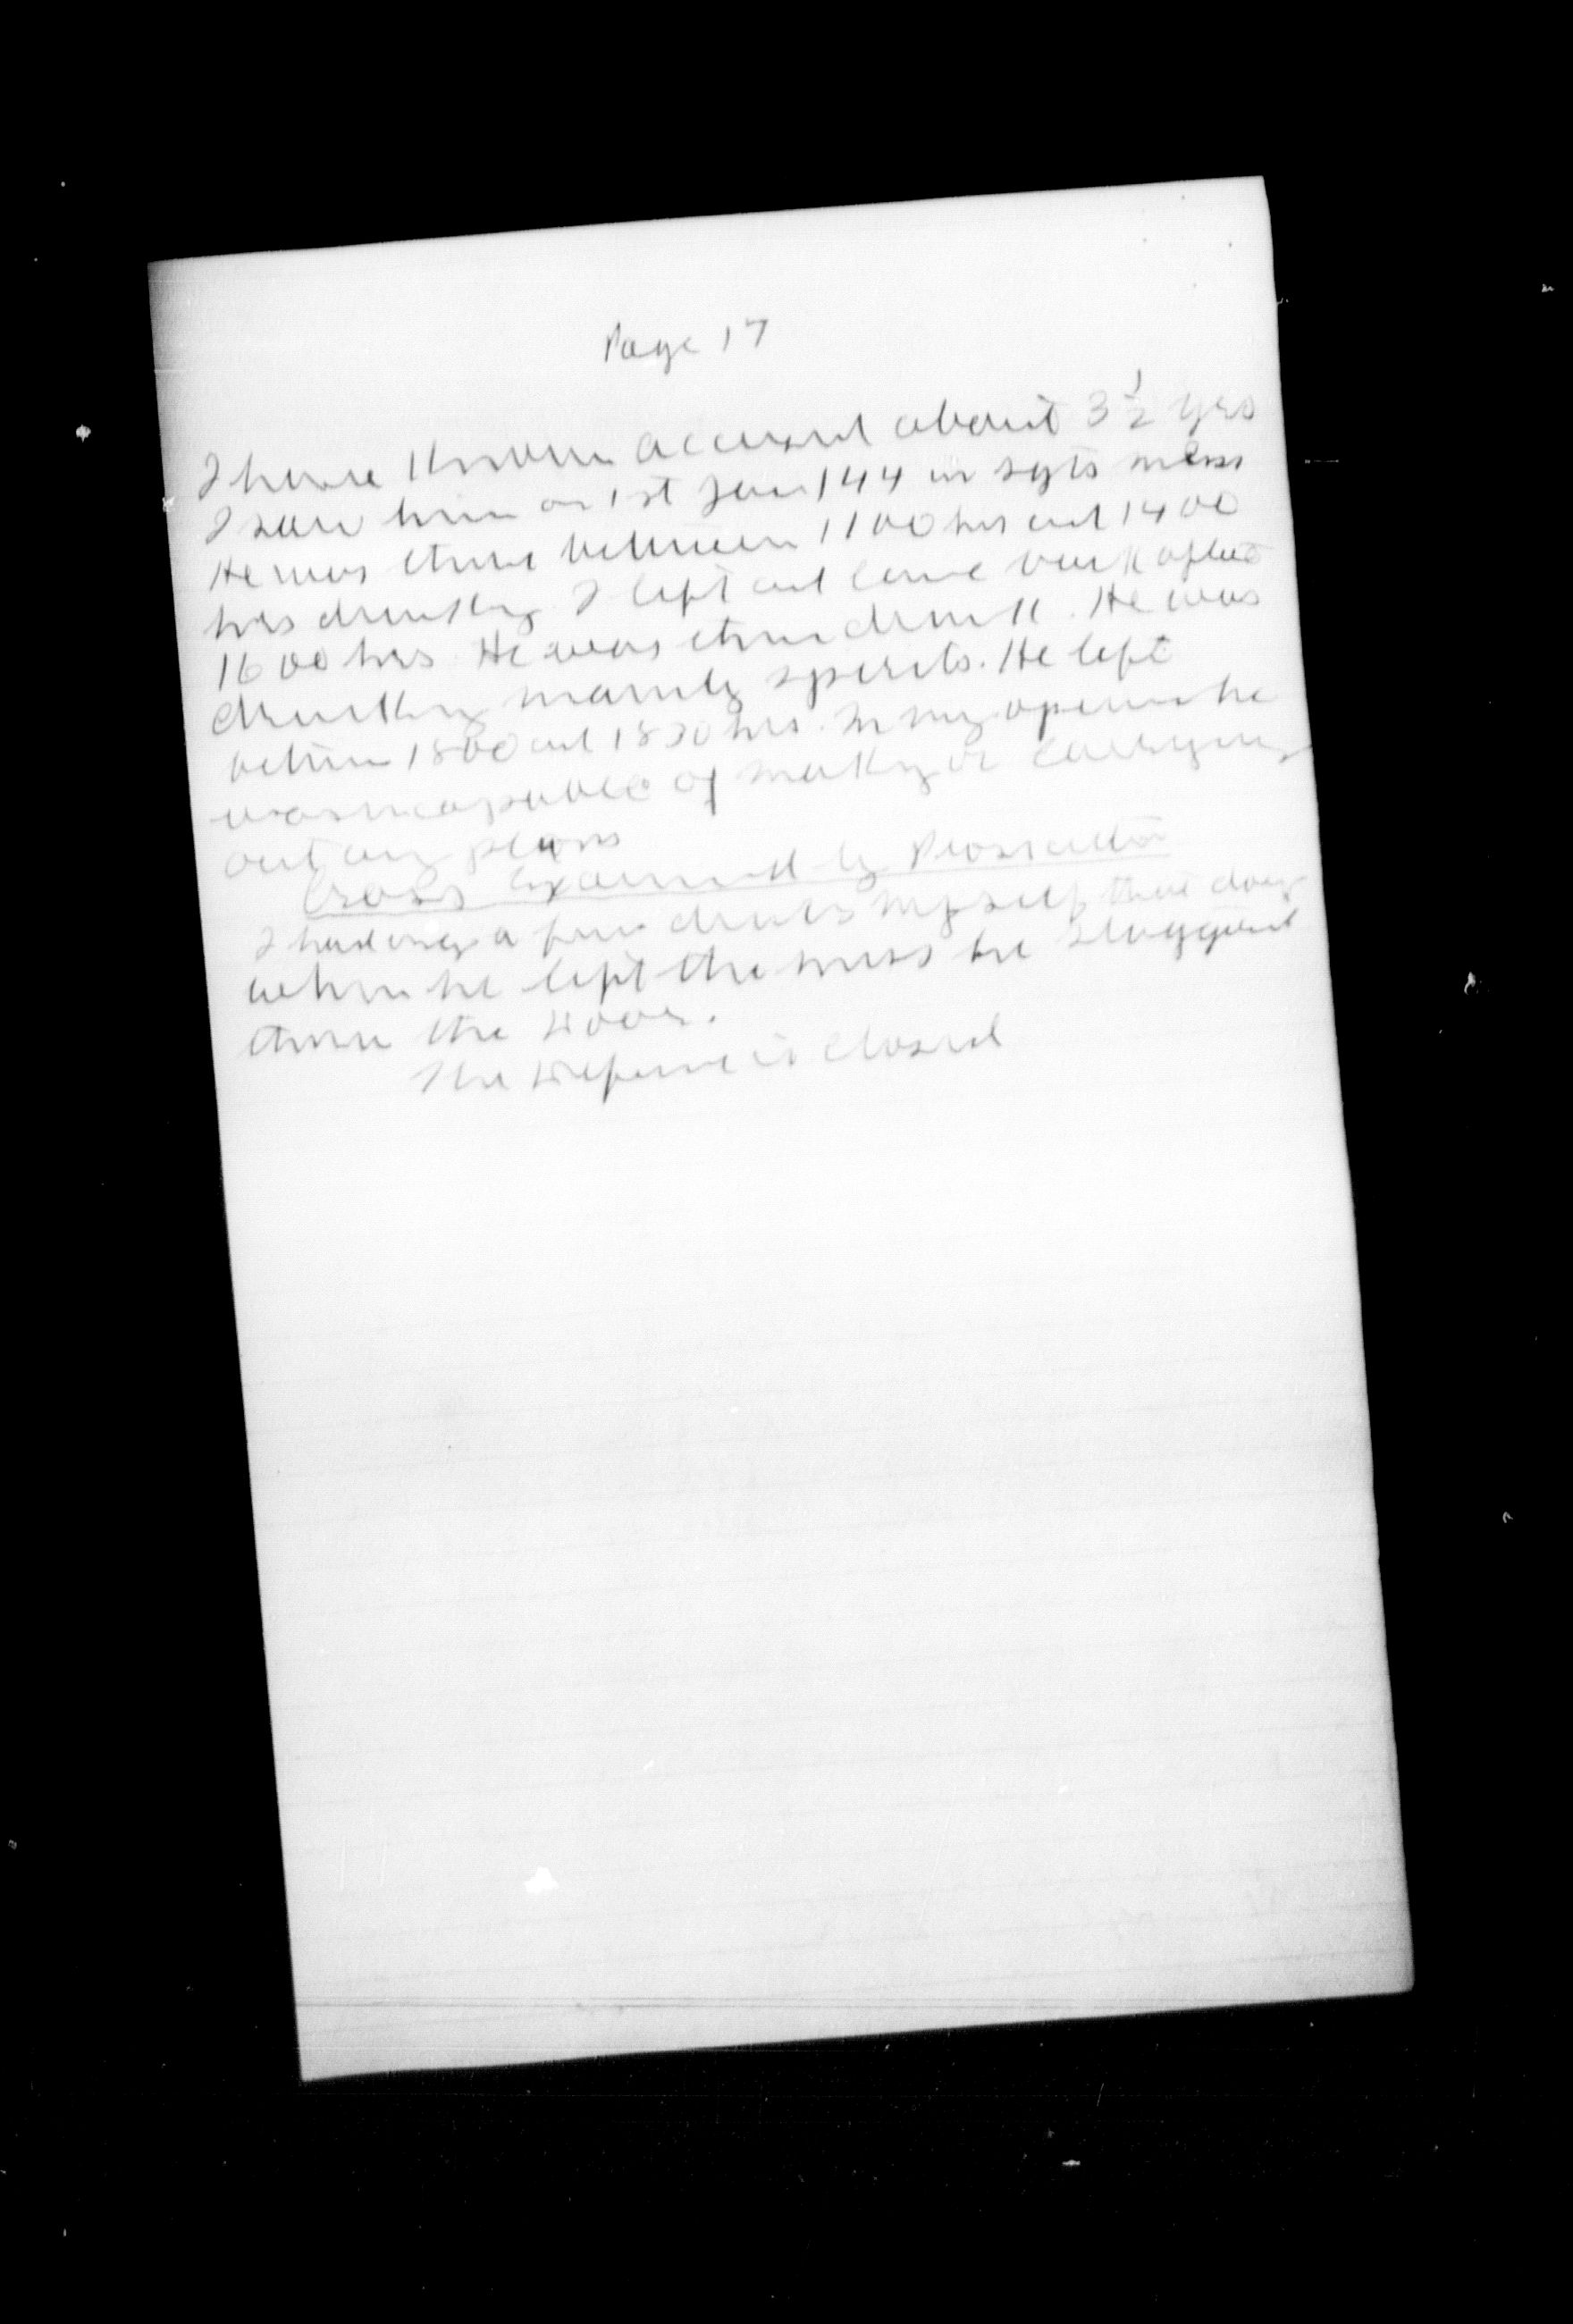 Page 17
I have known accused about 3 ½ yrs
I saw him on 1st Jan 144 in sgts mess
He was there between 1100 hrs and 1400
hrs drinking I left and came back after
1600 hrs. He was then drunk. He was
drinking mainly spirits. He left
between 1800 and 1830 hrs. In my opinion he
was incapable of making or carrying
out any plans
Cross Examined by Prosecutor
I had only a few drinks myself that day
when he left the mess he staggered
thru the door.
The Defence is closed